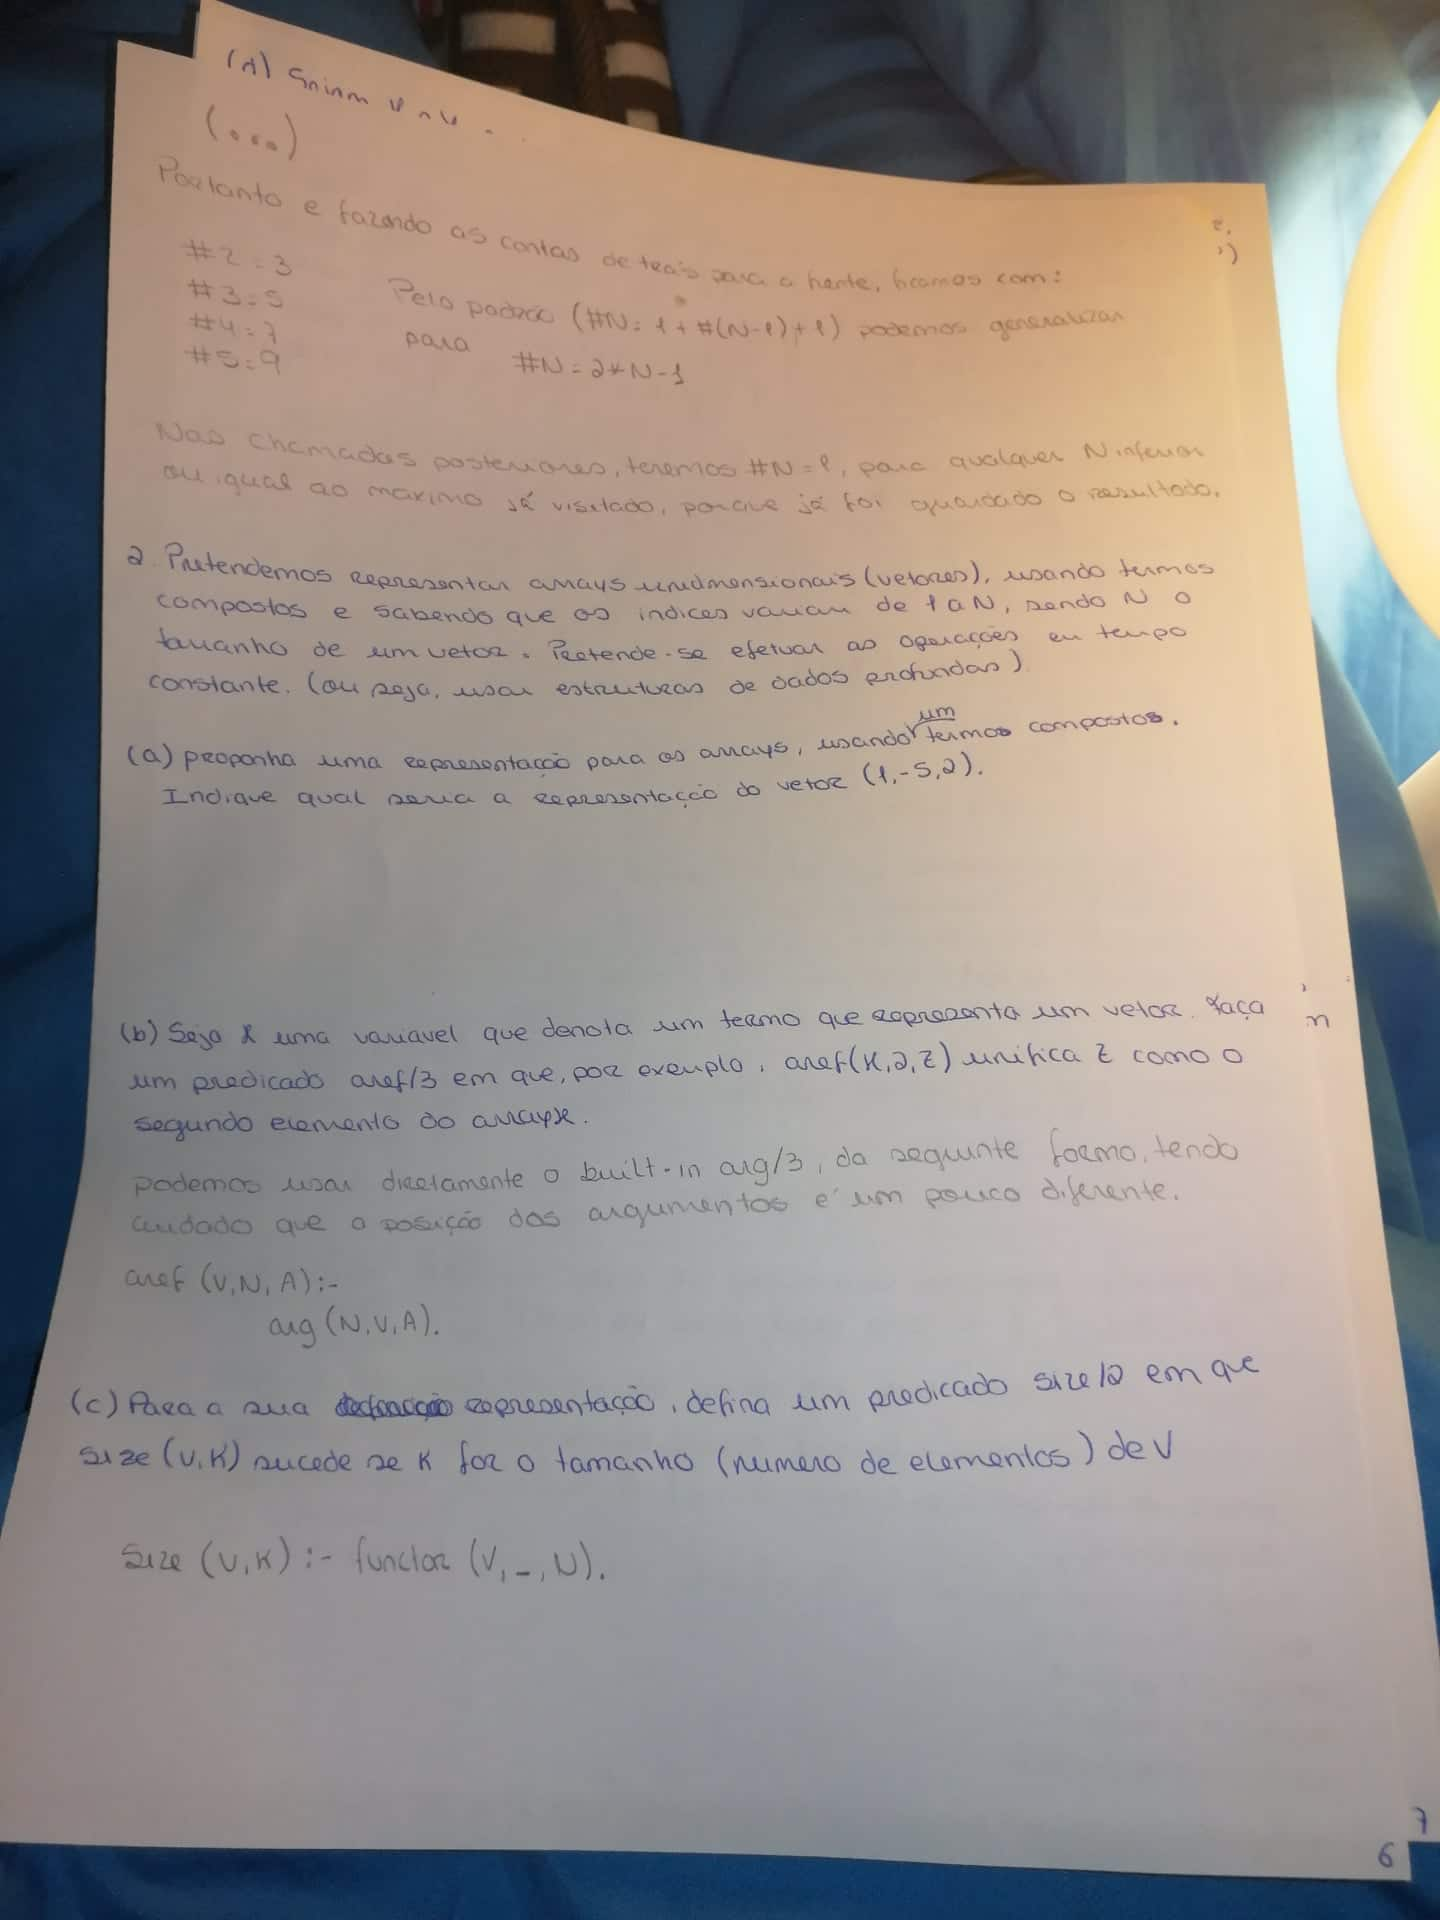 (d) Sejam V e U
(...)
Portanto e fazendo as contas de trás para a frente, ficamos com:
#2=3
#3=5
#4=7
#5=9
Pelo padrão (#N= 1+#(N-1)+1) podemos generalizar
para #N=2*N-1
Nas chamadas posteriores, teremos #N=1, para qualquer N inferior
ou igual ao máximo já visitado, porque já foi guardado o resultado.
2. Pretendemos representar arrays unidmensionais (vetores), usando termos
compostos e sabendo que os índices variam de 1 a N, sendo N o
tamanho de um vetor. Pretende-se efetuar as operações em tempo
constante. (ou seja, usar estruturas de dados profundas)
(a) proponha uma representação para os arrays, usando um termos compostos.
Indique qual seria a representação do vetor (1,-5,2).
(b) Seja X uma variavel que denota um termo que representa um vetor. Faça
um predicado aref/3 em que, por exemplo, aref(X,2,Z) unifica Z como o
segundo elemento do array X.
podemos usar diretamente o built-in arg/3, da seguinte forma, tendo
cuidado que a posição dos argumentos é um pouco diferente.
aref (V,N,A):-
arg (N,V,A).
(c) Para a sua representação, defina um predicado size/2 em que
size (V,K) sucede se K for o tamanho (numero de elementos) de V
size (V,K) :- functor (V,_,N).
7
6